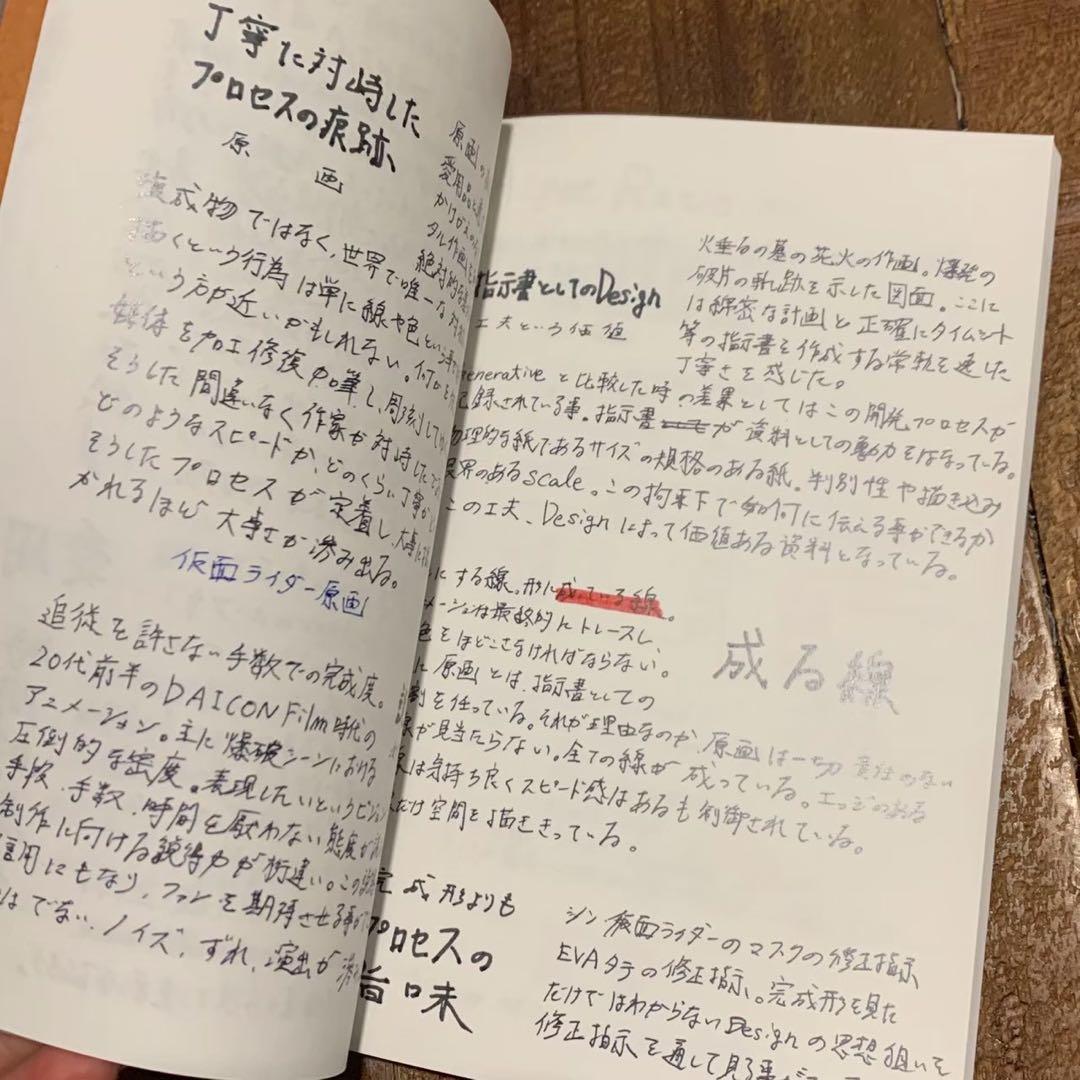 丁寧に対峙した
プロセスの痕跡
原画
複成物ではなく、世界で唯一な
描くという行為は単に線や色という
という方が近いかもしれない。何か
媒体を加工修復加筆し、周刻して
そうした間違いなく作家が対峙した
どのようなスピードか、どのくらい丁寧か
そうしたプロセスが定着し、大事に
かれるほど大事さが滲み出る。
仮面ライダー原画
追従を許さない手数での完成度。
20代前半のDAICON Film時代の
アニメーション。主に爆破シーンにおける
圧倒的な密度。表現したいというビジョン
手段、手数、時間を厭わない態度が
制作に向ける説得力が桁違い。この
信用にもなり、ファンを期待させる事が
はでない、ノイズ、ずれ、演出が
原画の
愛用品と
かけがえの
タル作画
絶対的な
指示書としてのDesign
工夫という価値
火垂るの墓の花火の作画。爆発の
破片の軌跡を示した図面。ここに
は綿密な計画と正確にタイムシート
等の指示書を作成する常軌を逸した
丁寧さを感じた。
generativeと比較した時の差異としてはこの開発プロセスが
記録されている事。指示書が資料としての動力をはなっている。
物理的な紙であるサイズの規格のある紙。判別性や描き込み
限界のあるscale。この拘束下で如何に伝える事ができるか
この工夫、Designによって価値ある資料となっている。
にする線。形に成っている線。
メーションは最終的にトレースし
色をほどこさなければならない。
に原画とは、指示書としての
割を任っている。それが理由なのか、原画は一切責任のない
線が見当たらない。全ての線が成っている。エッジのある
は気持ち良くスピード感はあるも制御されている。
だけ空間を描ききっている。
成る線
完成形よりも
プロセスの
旨味
シン・仮面ライダーのマスクの修正指示
EVAタテの修正指示。完成形を見た
だけではわからないDesignの思想狙いを
修正指示を通して見る事